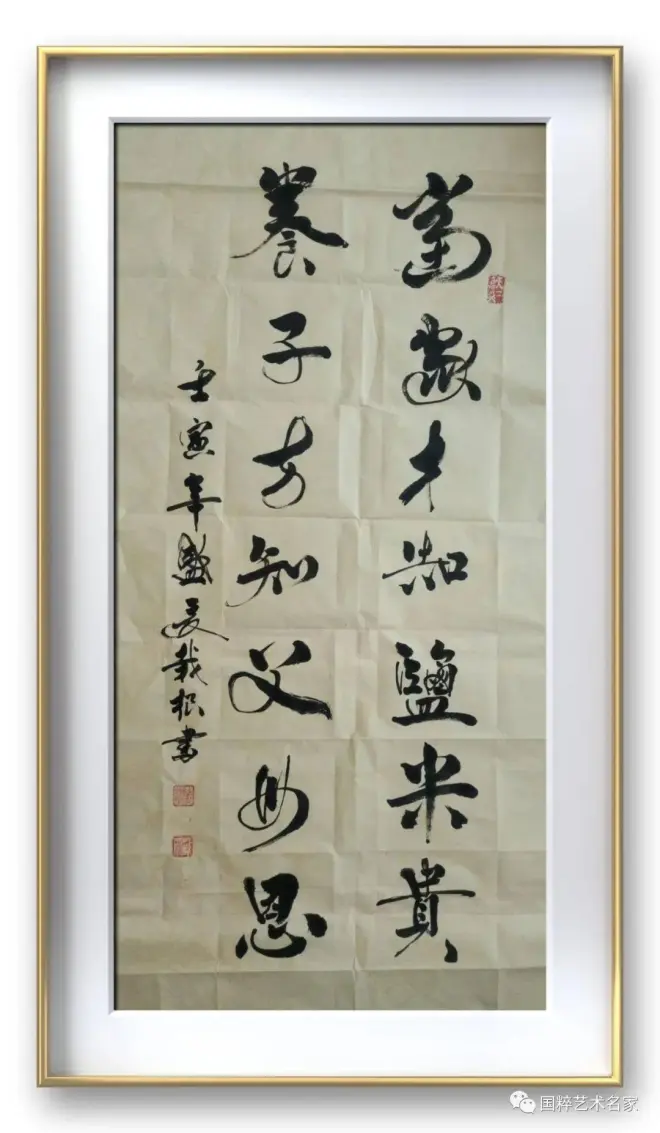 當家才知鹽米貴
養子方知父母恩
壬寅年盛夏栽根書
国粹艺术名家